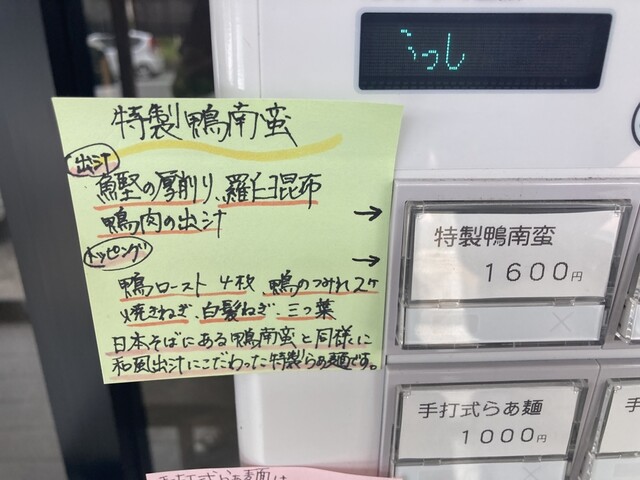 特製鴨南蛮
出汁
鰹の厚削り、羅臼昆布
鴨肉の出汁
→
トッピング
→
鴨ロースト 4枚、鴨のつみれ2ケ
焼きねぎ・白髪ねぎ・三つ葉
日本そばにある鴨南蛮と同様に
和風出汁にこだわった特製らぁ麺です。
特製鴨南蛮
1600円
×
手打式らぁ麺
1000円
手打式らぁ麺は